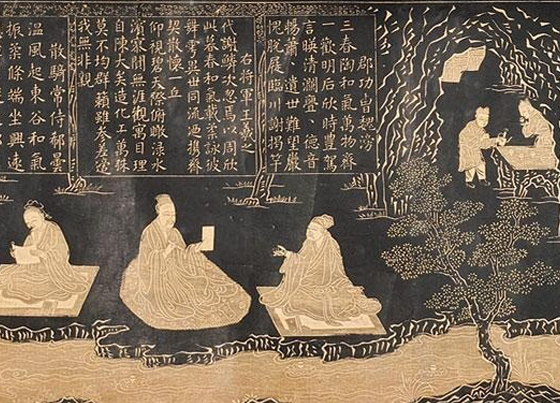 郡功曹魏滂
三春陶和氣萬物齊
一歡明后欣時豐駕
言暎清瀾亹、德音
暢蕭、遺世難望巖
愧脫屣臨川謝揭竿
右將軍王羲之
代謝鱗次忽焉以周欣
此暮春和氣載柔詠彼
舞雩異世同流迺攜齊
契散懷一丘
仰視碧天際俯瞰淥水
濱寥闃無涯觀寓目理
自陳大矣造化工萬殊
莫不均群籟雖參差適
我無非親
散騎常侍郗曇
溫風起東谷和氣
振柔條端坐興遠